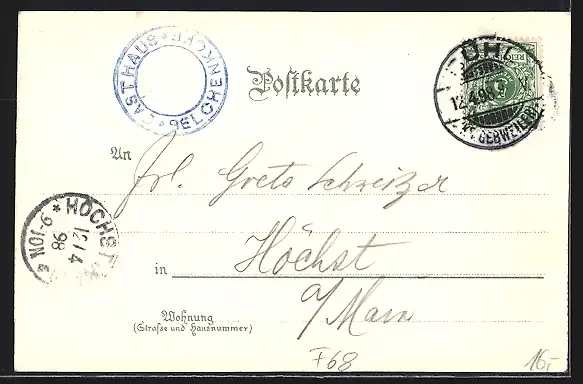 GASTHAUS * BELCHENKOPF *
Postkarte
BÜHL
12.4.98
(Kr. GEBWEILER)
REICHSPOST
An
Frl. Grete Schweizer
HÖCHST
12 / 4
98
9-10N
in Höchst
a/Main
Wohnung
(Strasse und Hausnummer)
F68
16,-